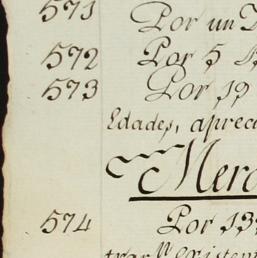 571 Por un
572 Por 5
573 Por 19
Edades, aprec
Merc
574 Por 13
existent